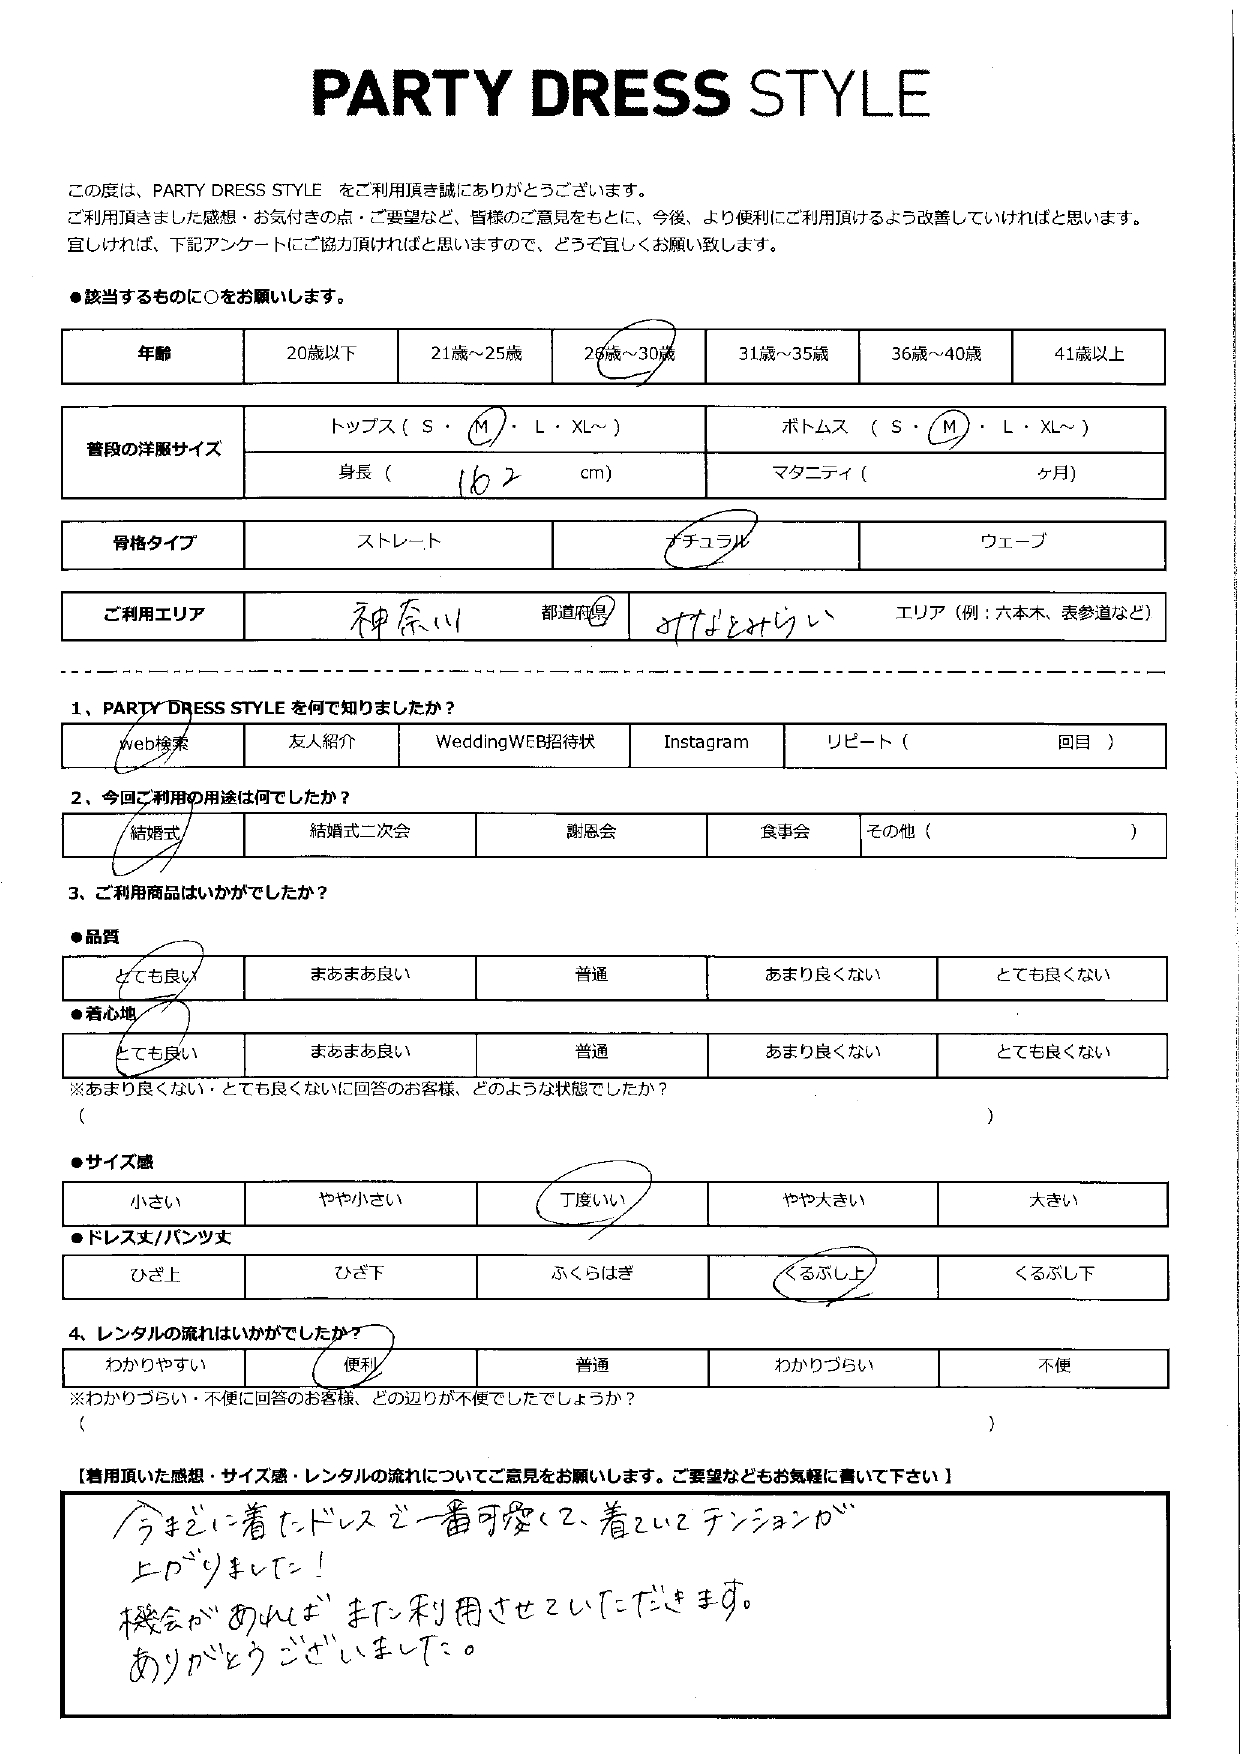 PARTY DRESS STYLE
この度は、PARTY DRESS STYLE　をご利用頂き誠にありがとうございます。
ご利用頂きました感想・お気付きの点・ご要望など、皆様のご意見をもとに、今後、より便利にご利用頂けるよう改善していければと思います。
宜しければ、下記アンケートにご協力頂ければと思いますので、どうぞ宜しくお願い致します。
●該当するものに○をお願いします。
年齢 20歳以下 21歳～25歳 26歳～30歳 31歳～35歳 36歳～40歳 41歳以上
普段の洋服サイズ トップス ( S ・ M ・ L ・ XL～ ) ボトムス ( S ・ M ・ L ・ XL～ )
身長 ( 162 cm) マタニティ ( ヶ月)
骨格タイプ ストレート ナチュラル ウェーブ
ご利用エリア 神奈川 都道府県 みなとみらい エリア（例：六本木、表参道など）
1、PARTY DRESS STYLE を何で知りましたか？
Web検索 友人紹介 WeddingWEB招待状 Instagram リピート ( 回目 )
2、今回ご利用の用途は何でしたか？
結婚式 結婚式二次会 謝恩会 食事会 その他 ( )
3、ご利用商品はいかがでしたか？
●品質
とても良い まあまあ良い 普通 あまり良くない とても良くない
●着心地
とても良い まあまあ良い 普通 あまり良くない とても良くない
※あまり良くない・とても良くないに回答のお客様、どのような状態でしたか？
( )
●サイズ感
小さい やや小さい 丁度いい やや大きい 大きい
●ドレス丈/パンツ丈
ひざ上 ひざ下 ふくらはぎ くるぶし上 くるぶし下
4、レンタルの流れはいかがでしたか？
わかりやすい 便利 普通 わかりづらい 不便
※わかりづらい・不便に回答のお客様、どの辺りが不便でしたでしょうか？
( )
【着用頂いた感想・サイズ感・レンタルの流れについてご意見をお願いします。ご要望などもお気軽に書いて下さい 】
今までに着たドレスで一番可愛くて、着ていてテンションが
上がりました！
機会があればまた利用させていただきます。
ありがとうございました。